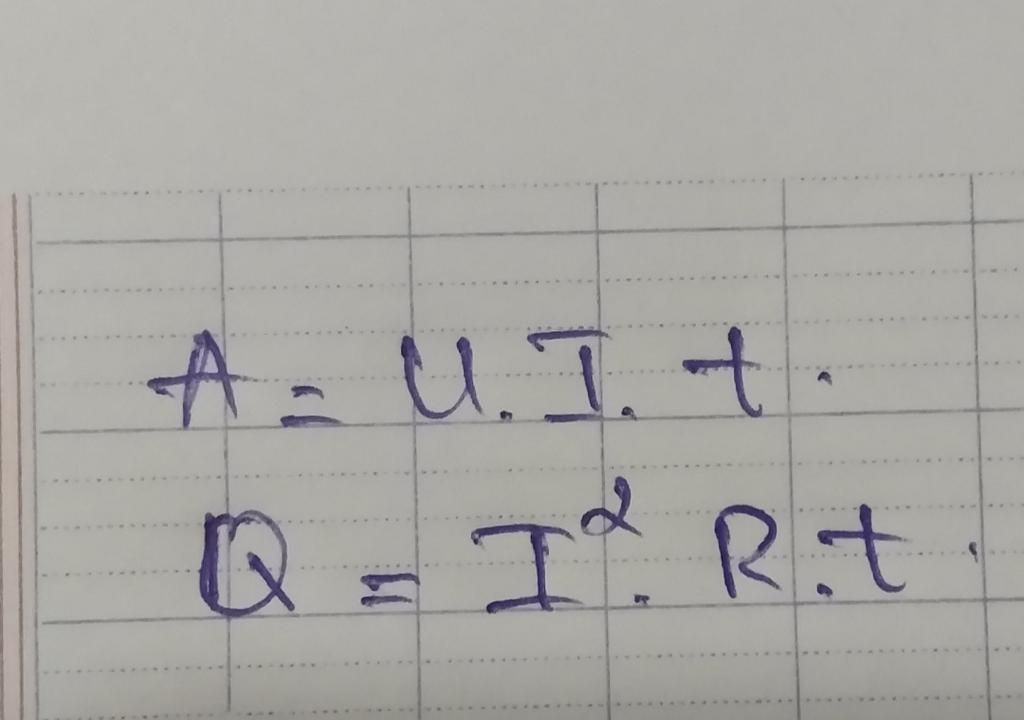 A = U.I.t.
Q = I².R.t.